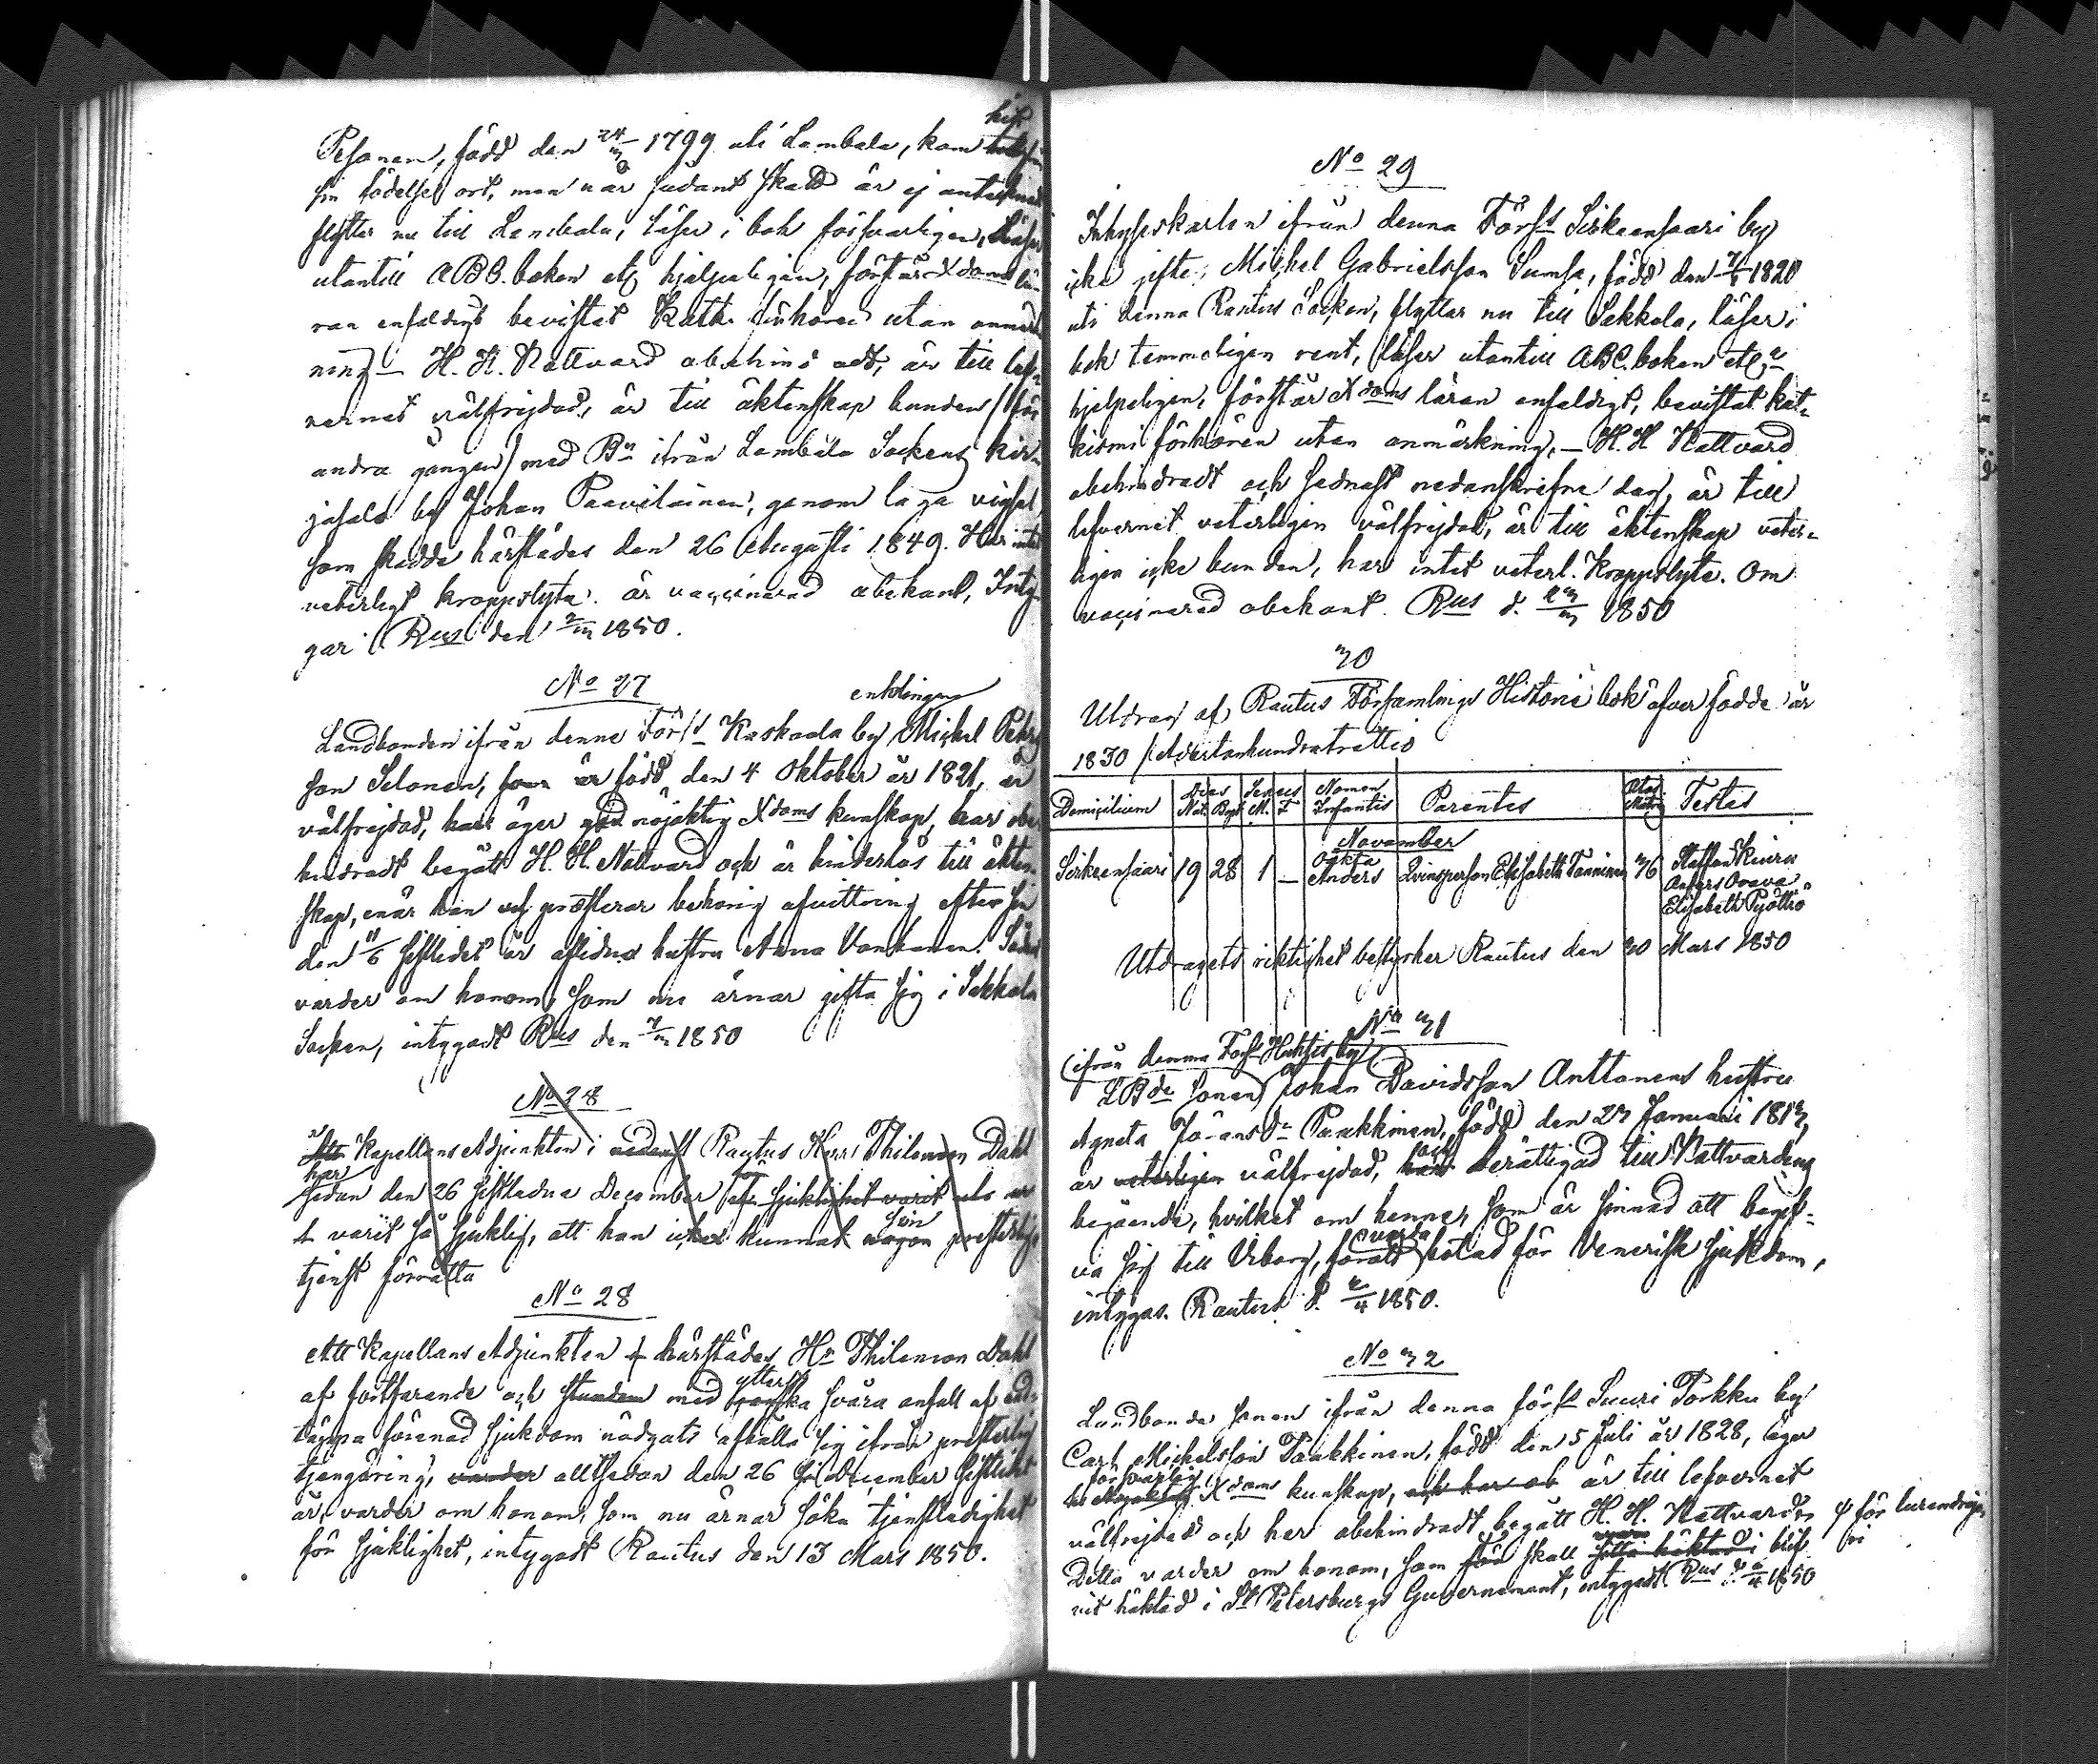 Pesonen, född den 24/3 1799 uti Lembala, kom hit
sin födelse ort, men när sådant skedd är ej antecknad
flyttar nu till Lembala, läser i bok försvarligen, läser
utantill ABB. boken etc hjelpeligen, förstår Xdoms lä-
ran enfaldigt bevistat Kath. förhören utan anmärk
ning — H. H. Nattvard obehindradt, är till lef-
vernet välfrejdad, är till äktenskap bunden (för
andra gången) med Bn ifrån Lembala Sockens Kir-
jasalo by Johan Paavilainen, genom laga vigsel,
som skedde härstädes den 26 Augusti 1849. Har intet
veterligt kroppslyte. är vaccinerad obekant, Inty-
gar Rus den 2/3 1850.
No 27
enklingen
Landbonden ifrån denne Förs:s Kaskaala by Michel Pehrs
son Selonen, som är född den 4 Oktober år 1821, är
välfrejdad, har äger god nöjaktig Xdoms kunskap, har obe
hindradt begått H. H. Nattvard och är hinderlös till äkten
skap, enär han presterar behörig afvittring efter sin
den 11/6 sistledet år aflidna hustru Anna Vanhanen. Sådant
varder om honom, som nu ärnar gifta sig i Sakkola
Socken, intygadt Rus den 7/3 1850
No 28
Att Kapellans Adjunkten i Rautus Herr Philemon Dahl
har
sedan den 26 sistledne December för sjuklighet varit
varit så sjuklig, att han icke kunnat någon sin presterlig
tjenst förrätta
No 28
Att Kapellans Adjunkten härstädes Hr Philemon Dahl
ytterst
af fortfarande och stundom med ganska svåra anfall af and-
täppa förenad sjukdom nödgats afhålla sig ifrån presterlig
tjengöring, varder alltsedan den 26 December sistlidet
år, varder om honom, som nu ärnar söka tjenstledighet
för sjuklighet, intygadt Rautus den 13 Mars 1850.
No 29
Inhyseskarlen ifrån denna Förs:s Sirkeensaari by
icke gifte, Michel Gabrielsson Sumsa, född den 1820
uti denna Rautus Socken, flyttar nu till Sakkola, läser i
bok temmeligen rent, läser utantill ABC boken etc
hjelpeligen, förstår Xdoms läran enfaldigt, bevistat kat-
kismi förhören utan anmärkning, — H. H Nattvard
obehindradt och sednast nedanskrifne dag, är till
lefvernet veterligen välfrejdad, är till äktenskap veter-
ligen icke bunden, har intet veterl. Kroppslyte. Om
vaccinerad obekant. Rus d. 23/3 1850
30
Utdrag af Rautus Församlings Historie bok öfver födde år
1830 / Adertonhundratrettio
Domicilium Dies Nat. Bapt. Sexus M. F Nomen Infantis Parentes Ætas Matris Testes
November
Sirkeensaari 19 28 1 — Oäkta Anders Qvinsperson Elisabeth Tanninen 36 Staffan Kiuru
Anders Orava
Elisabeth Pyöttiö
Utdragets riktighet bestyrker Rautus den 30 Mars 1850
No 31
(ifrån denna Förs:s Huhtis by)
LBde sonen Johan Davidsson Anttonens hustru
Agneta Jöransdr Paukkinen, född den 23 Januari 1813,
är veterligen välfrejdad, och berättigad till Nattvardens
begående, hvilket om henne, som är sinnad att begif-
varda
va sig till Viborg, föratt botad för Venerisk sjukdom,
intygas. Rautus d. 2/4 1850.
No 32
Landbonde sonen ifrån denna förs:s Suuri Porkku by
Carl Michelsson Paukkinen, född den 5 Juli år 1828, äger
försvarlig
Xdoms kunskap, och har ob är till lefvernet
välfrejdad och har obehindradt begått H. H. Nattvard,
Detta varder om honom, som för skall sitta häktad i blif
vit häktad i St Petersburgs Guvernement, intygadt. Rus d. 1850
φ för lurendrige
ri